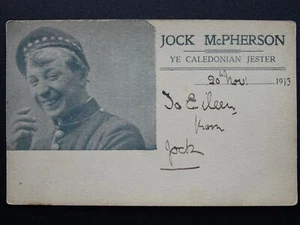 JOCK McPHERSON
YE CALEDONIAN JESTER
20th Nov. 1913
To Eileen
from
Jock